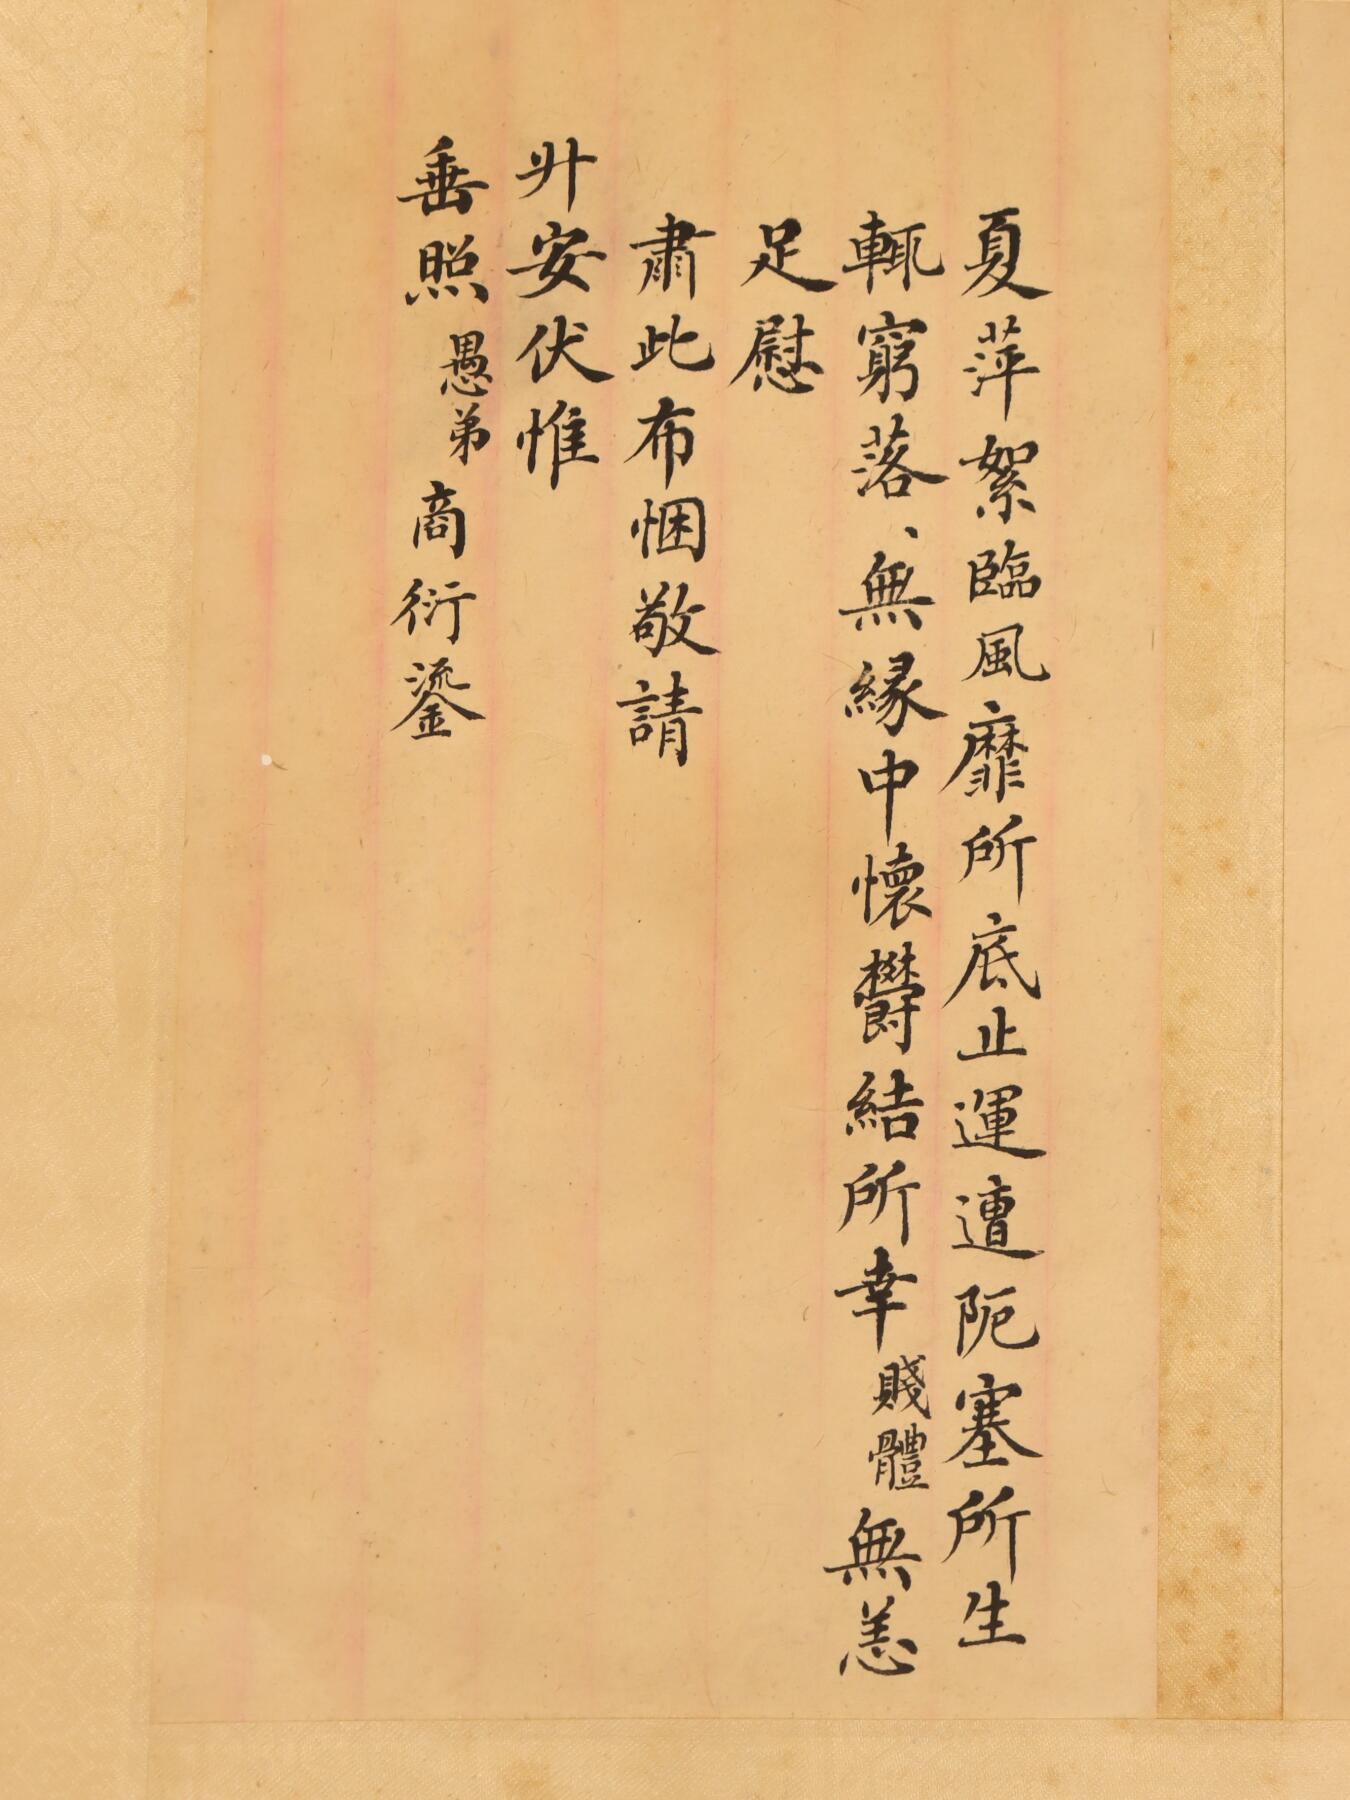 夏萍絮臨風靡所底止運遭阨塞所生
輒窮落、無緣中懷欝結所幸賤體無恙
足慰
肅此布悃敬請
升安伏惟
垂照愚弟商衍鎏